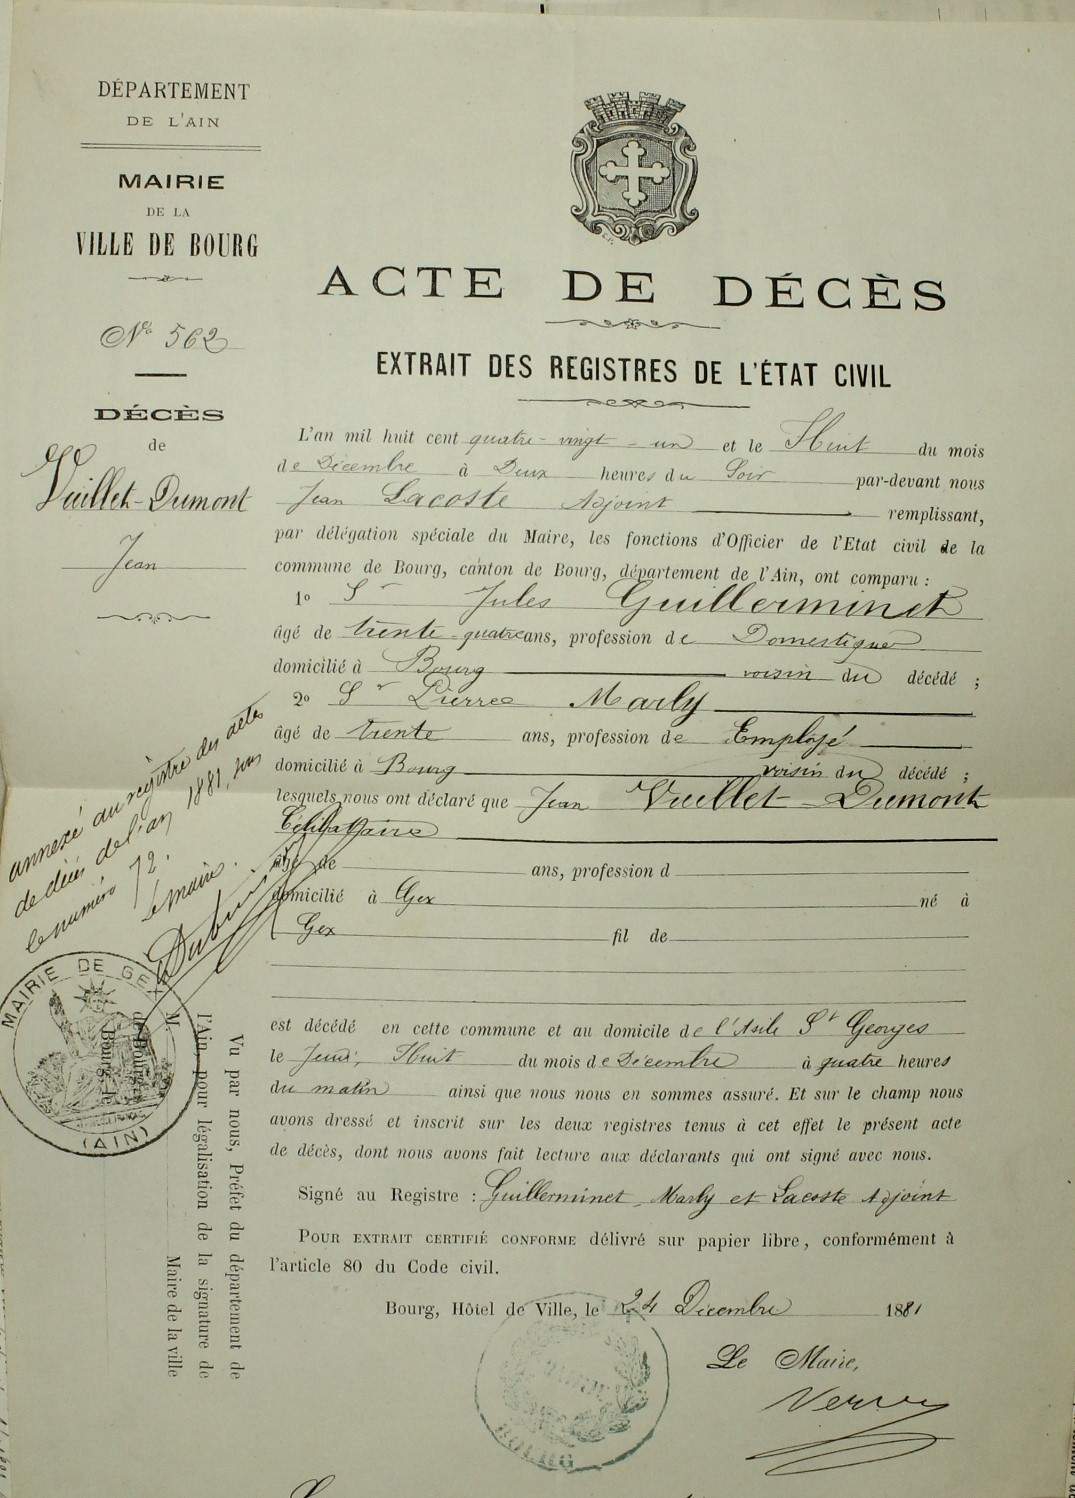 DÉPARTEMENT
DE L'AIN
MAIRIE
DE LA
VILLE DE BOURG
No 562
DÉCÈS
de
Vuillet-Dumont
Jean
ACTE DE DÉCÈS
EXTRAIT DES REGISTRES DE L'ÉTAT CIVIL
L'an mil huit cent quatre-vingt-un et le Huit du mois
de Décembre à Deux heures du Soir par-devant nous
Jean Lacoste Adjoint remplissant,
par délégation spéciale du Maire, les fonctions d'Officier de l'Etat civil de la
commune de Bourg, canton de Bourg, département de l'Ain, ont comparu :
1o Sr Jules Guillerminet
âgé de trente-quatre ans, profession de Domestique
domicilié à Bourg voisin du décédé ;
2o Sr Pierre Marly
âgé de trente ans, profession de Employé
domicilié à Bourg voisin du décédé ;
lesquels nous ont déclaré que Jean Vuillet-Dumont
Célibataire
âgé de ans, profession d
domicilié à Gex né à
Gex fil de
est décédé en cette commune et au domicile de l'Asile St Georges
le Jeudi, Huit du mois de Décembre à quatre heures
du matin ainsi que nous nous en sommes assuré. Et sur le champ nous
avons dressé et inscrit sur les deux registres tenus à cet effet le présent acte
de décès, dont nous avons fait lecture aux déclarants qui ont signé avec nous.
Signé au Registre : Guillerminet, Marly et Lacoste Adjoint
POUR EXTRAIT CERTIFIÉ CONFORME délivré sur papier libre, conformément à
l'article 80 du Code civil.
Bourg, Hôtel de Ville, le 24 Décembre 1881
Le Maire,
BOURG
annexé au registre des actes
de décès de l'an 1881, sous
le numéro 72.
Le maire.
MAIRIE DE GEX
(AIN)
Vu par nous, Préfet du département de
l'Ain, pour légalisation de la signature de
M. Maire de la ville
de Bourg.
Bourg, le